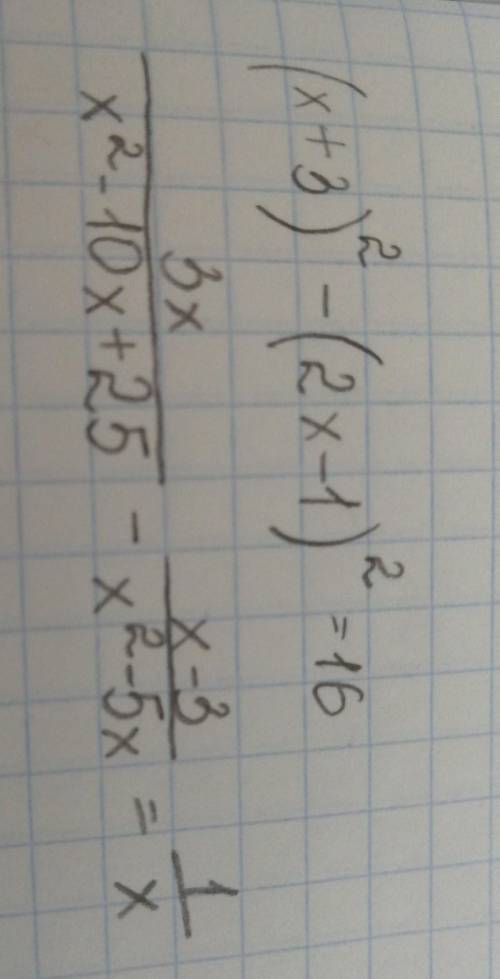 (x+3)² - (2x-1)² = 16
3x/(x² - 10x + 25) - (x-3)/(x² - 5x) = 1/x